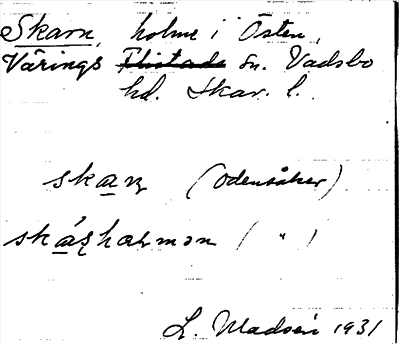 Skarn, holme i Östen,
Värings Flistads sn. Vadsbo
hd. Skar. l.
skaɳ (Odensåker)
(")
L. Madsén 1931